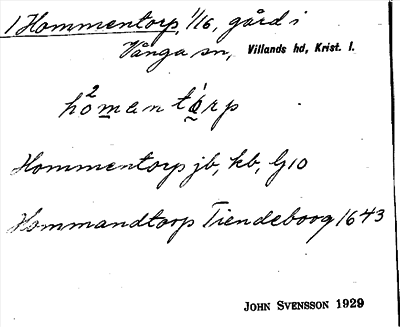 1 Hommentorp, 1/16, gård i
Vånga sn, Villands hd, Krist. l.
ho²mantårp
Hommentorp jb, kb, G10
Hommandtorp Tiendeboog 1643
JOHN SVENSSON 1929